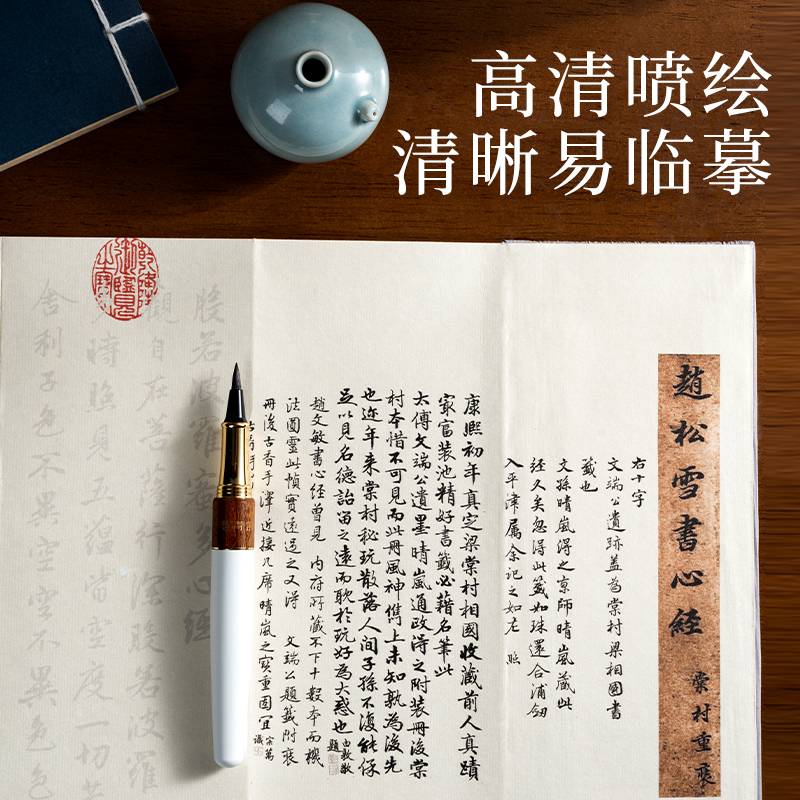 高清喷绘
清晰易临摹
趙松雪書心經
棠村重裝
右十字
文端公遺跡蓋為棠村梁相國書
籤也
文孫晴嵐得之京師晴嵐藏此
經久矣忽得此籤如珠還合浦劒
入平津屬余記之如左 照
康熙初年真定梁棠村相國收藏前人真蹟
家富装池精好書籤必藉名筆此
太傅文端公遺墨晴嵐通政得之附装冊後棠
村本惜不可見而此冊風神儁上未知孰為後先
也近年来棠村秘玩散落人間子孫不復能保
足以見名德詒留之遠而耽於玩好為大惑也
由敦敬題
趙文敏書心經曾見 内府所藏不下十數本而機
法圓靈此幀實遠過之又得 文端公題籤附裝
冊後古香手澤近接几席晴嵐之寶重固宜
宗萬識
般若波羅蜜多心經
觀自在菩薩行深般若波羅
時照見五經皆空度一切苦
舍利子色不異空空不異色色